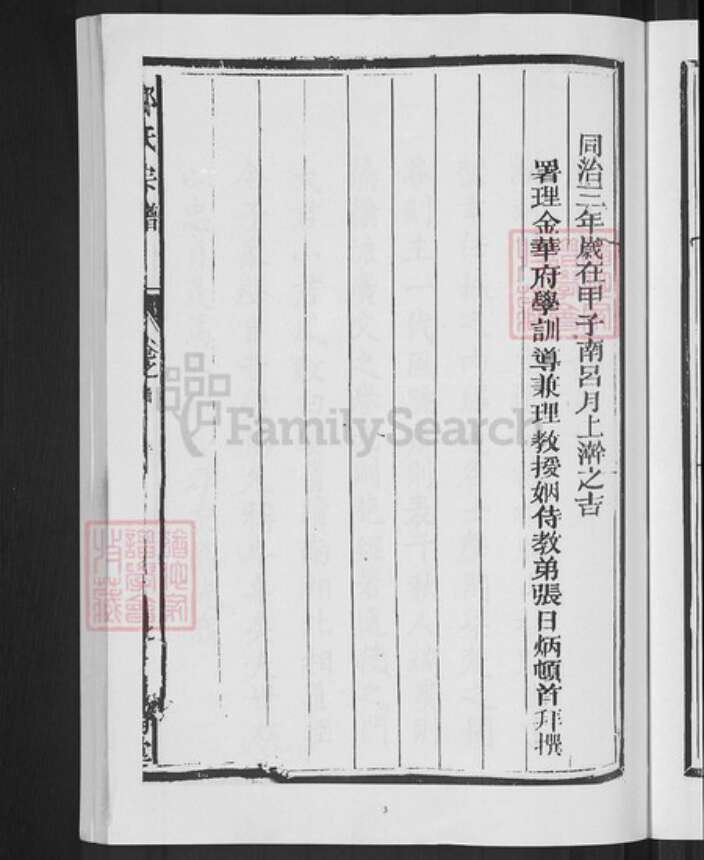 同治三年歲在甲子南呂月上澣之吉
署理金華府學訓導兼理教授姻侍教弟張日炳頓首拜撰
氏宗譜
卷之
堂
譜學會
FamilySearch
3